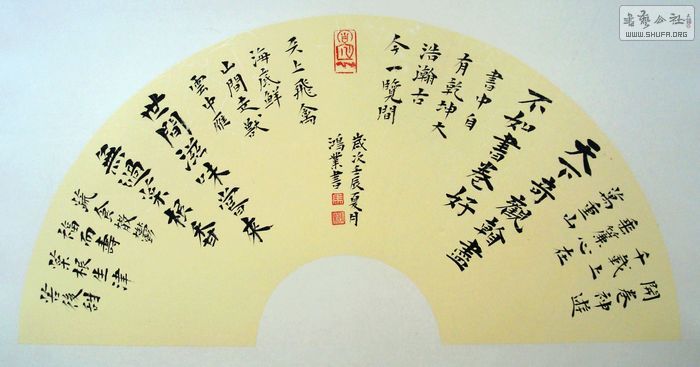 開卷神遊
千載上
垂簾心在
萬重山
天下奇觀看盡
不如書卷好
書中自
有乾坤大
浩瀚古
今一覽間
天上飛禽
海底鮮
山間走獸
雲中雁
世間滋味嘗來
無過菜根香
蔬食散鬱
福而壽
菜根生津
苦後甜
歲次壬辰夏月
鴻業書
書藝公社
WWW.SHUFA.ORG